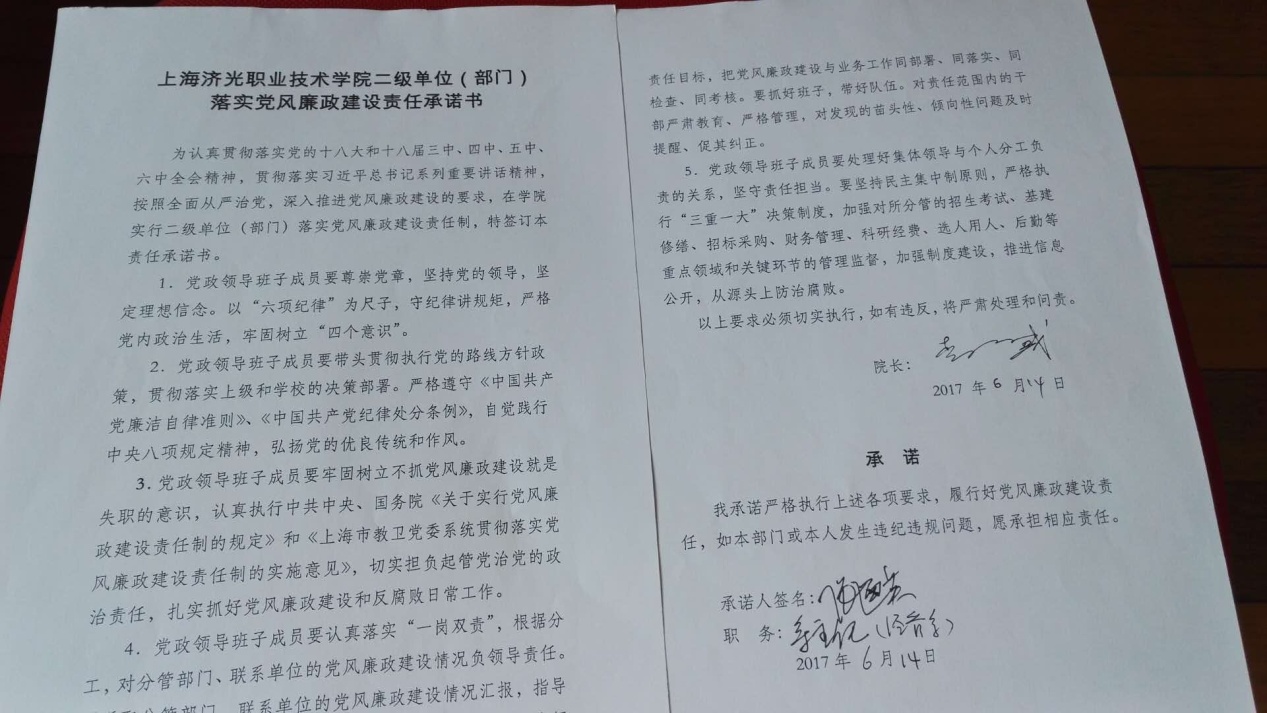 上海济光职业技术学院二级单位（部门）
落实党风廉政建设责任承诺书
为认真贯彻落实党的十八大和十八届三中、四中、五中、
六中全会精神，贯彻落实习近平总书记系列重要讲话精神，
按照全面从严治党，深入推进党风廉政建设的要求，在学院
实行二级单位（部门）落实党风廉政建设责任制，特签订本
责任承诺书。
1．党政领导班子成员要尊崇党章，坚持党的领导，坚
定理想信念。以“六项纪律”为尺子，守纪律讲规矩，严格
党内政治生活，牢固树立“四个意识”。
2．党政领导班子成员要带头贯彻执行党的路线方针政
策，贯彻落实上级和学校的决策部署。严格遵守《中国共产
党廉洁自律准则》、《中国共产党纪律处分条例》，自觉践行
中央八项规定精神，弘扬党的优良传统和作风。
3．党政领导班子成员要牢固树立不抓党风廉政建设就是
失职的意识，认真执行中共中央、国务院《关于实行党风廉
政建设责任制的规定》和《上海市教卫党委系统贯彻落实党
风廉政建设责任制的实施意见》，切实担负起管党治党的政
治责任，扎实抓好党风廉政建设和反腐败日常工作。
4．党政领导班子成员要认真落实“一岗双责”，根据分
工，对分管部门、联系单位的党风廉政建设情况负领导责任。
分管部门、联系单位的党风廉政建设情况汇报，指导
责任目标，把党风廉政建设与业务工作同部署、同落实、同
检查、同考核。要抓好班子，带好队伍。对责任范围内的干
部严肃教育、严格管理，对发现的苗头性、倾向性问题及时
提醒、促其纠正。
5．党政领导班子成员要处理好集体领导与个人分工负
责的关系，坚守责任担当。要坚持民主集中制原则，严格执
行“三重一大”决策制度，加强对所分管的招生考试、基建
修缮、招标采购、财务管理、科研经费、选人用人、后勤等
重点领域和关键环节的管理监督，加强制度建设，推进信息
公开，从源头上防治腐败。
以上要求必须切实执行，如有违反，将严肃处理和问责。
院长：
2017 年 6 月 14 日
承 诺
我承诺严格执行上述各项要求，履行好党风廉政建设责
任，如本部门或本人发生违纪违规问题，愿承担相应责任。
承诺人签名：
职 务：
2017 年 6 月 14 日